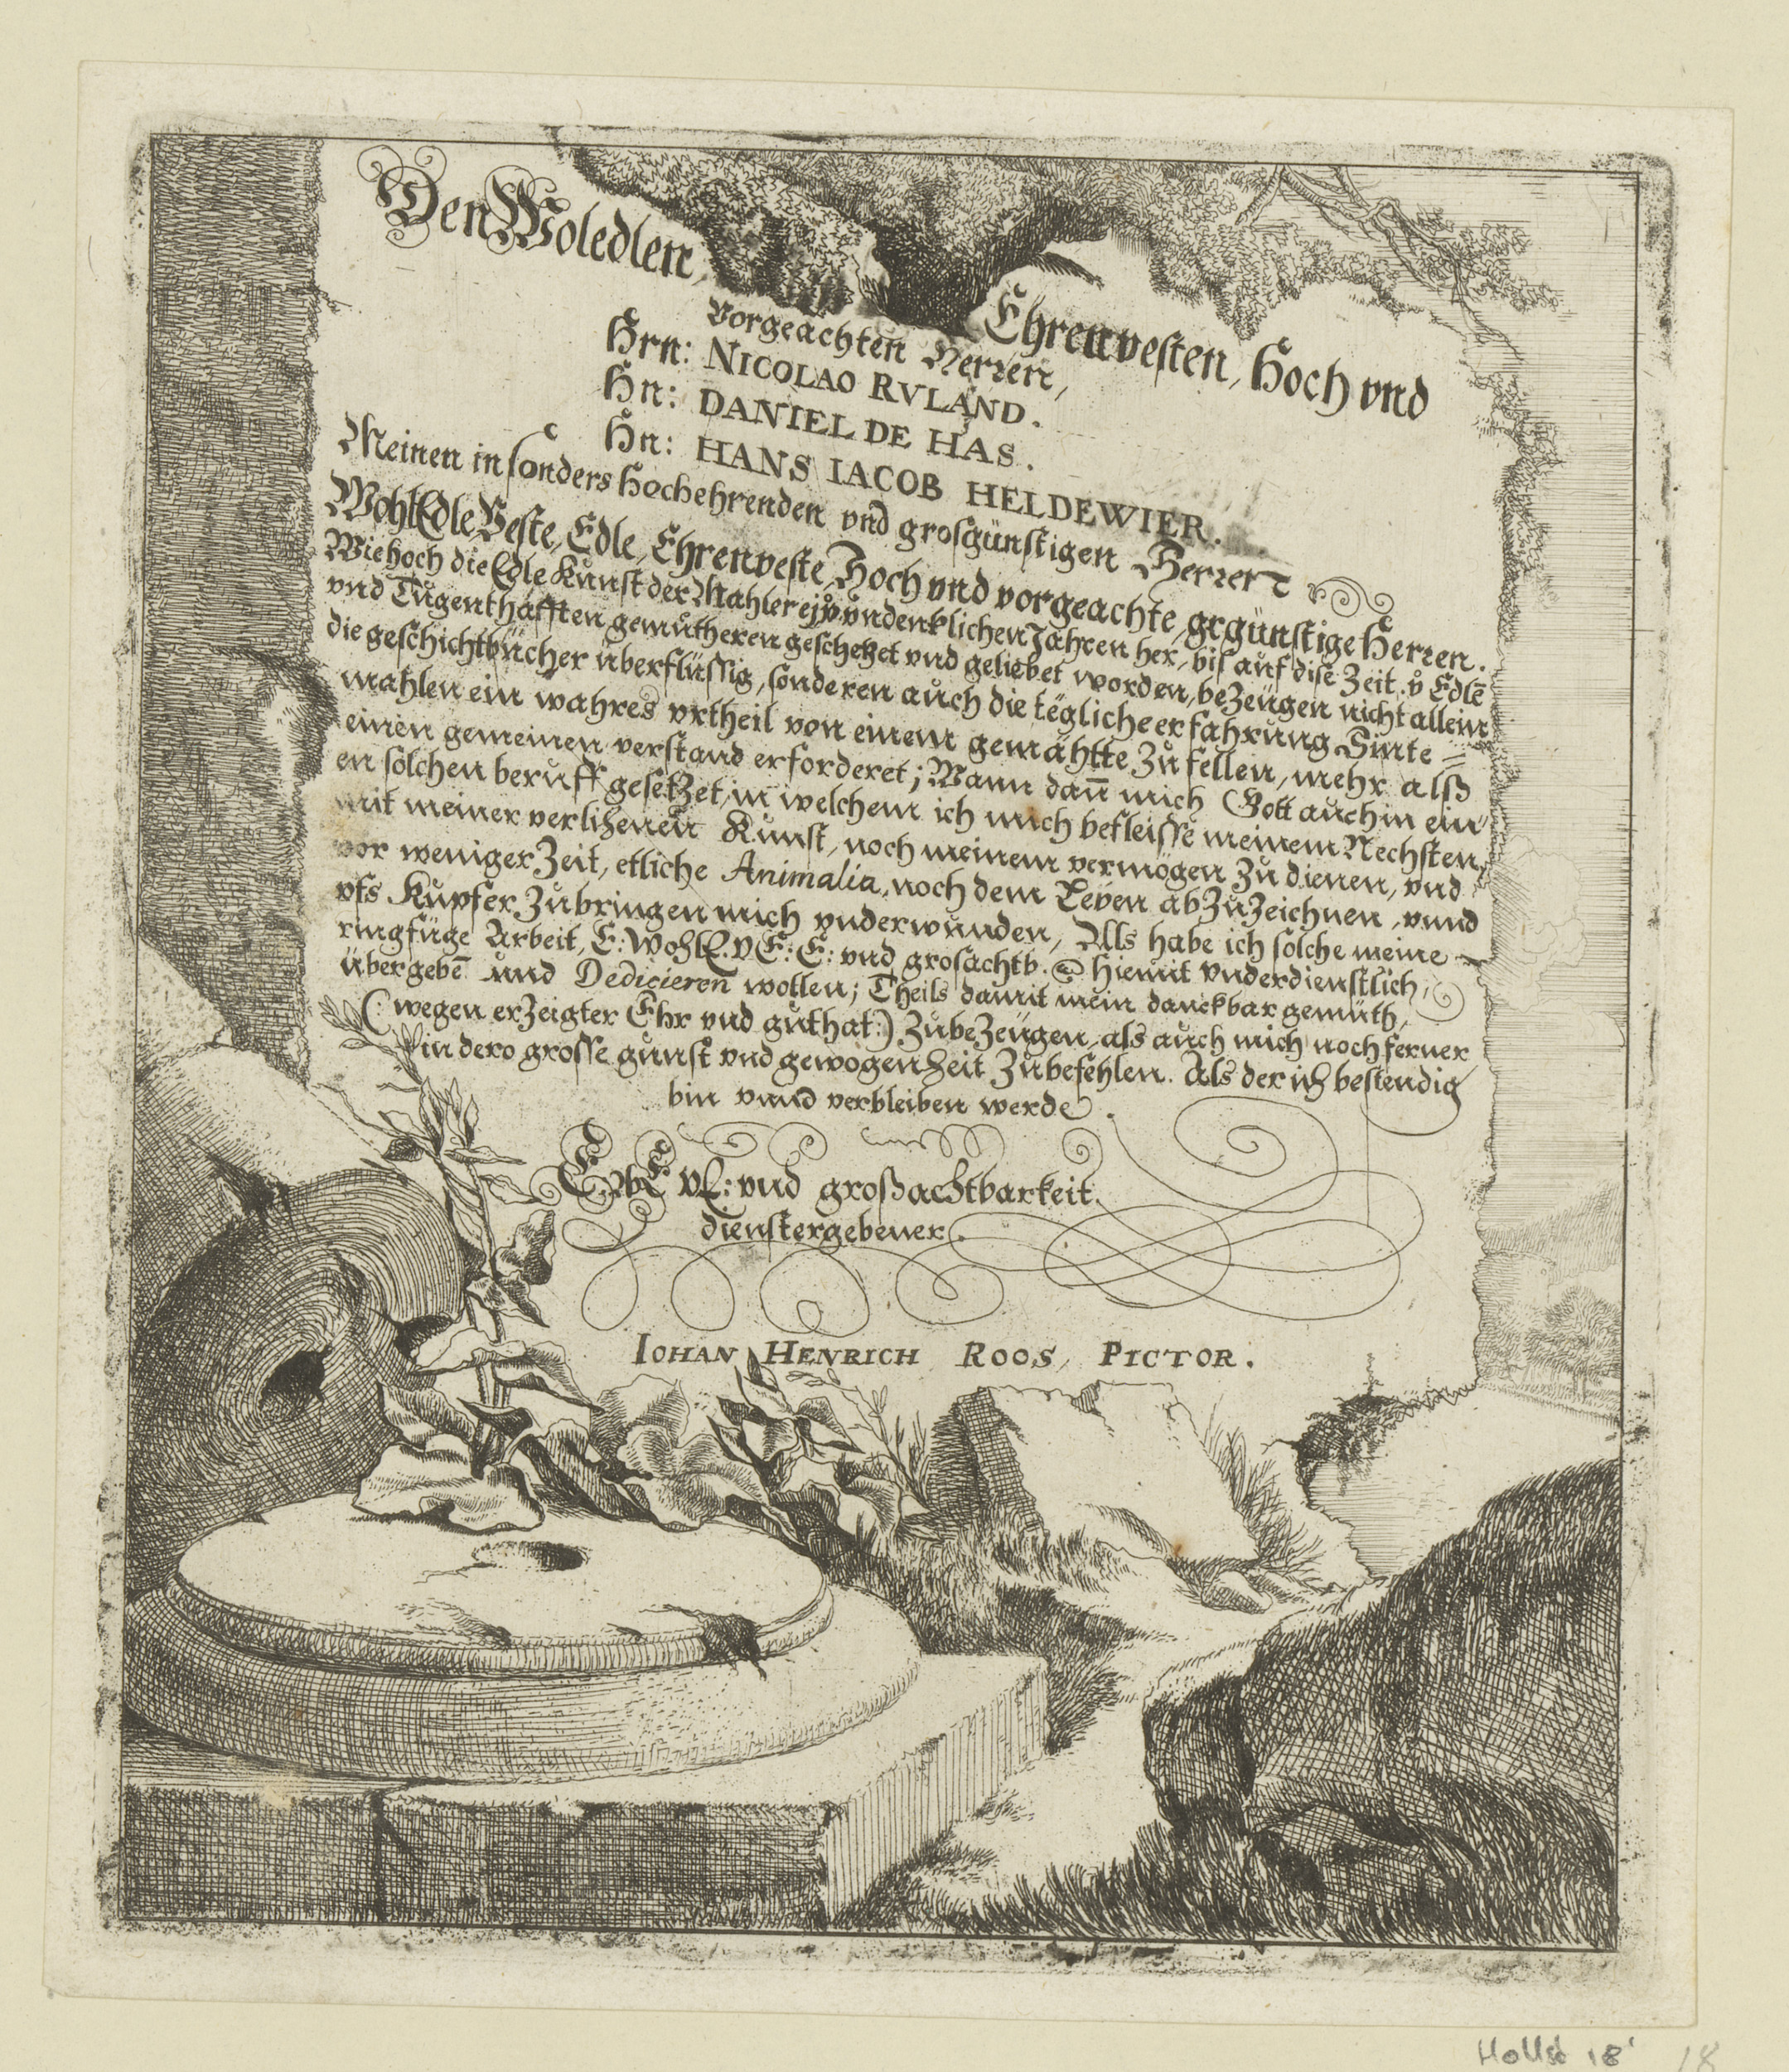 Den Woledlen, Ehrenvesten, Hoch vnd
Vorgeachten Herren,
Hrn: NICOLAO RVLAND.
Hn: DANIEL DE HAS.
Hn: HANS IACOB HELDEWIER.
Meinen insonders Hochehrenden vnd grosgünstigen Herren
WohlEdle Veste, Edle, Ehrenveste, Hoch vnd vorgeachte, grgünstige Herren.
Wie hoch die Edle Kunst der Mahlerej, v. vndenklichen Jahren her, bis auf dise Zeit, v Edlē
vnd Tugenthafften gemütheren geschetzet vnd geliebet worden, beZeugen nicht allein
die geschichtbücher überflüssig, sonderen auch die tëgliche erfahrung Sinte=
mahlen ein wahres vrtheil von einem gemählte Zu fellen, mehr alß
einen gemeinen verstand erforderet; Wann dañ mich Gott auch in ein
en solchen beruff gesetZet, in welchem ich mich befleisse meinem Nechsten,
mit meiner verlihenen Kunst, noch meinem vermögen Zu dienen, vnd
vor weniger Zeit, etliche Animalia, noch dem Leben abZuZeichnen, vnnd
vfs Kupfer Zubringen mich vnderwunden, Als habe ich solche meine
ringfüge Arbeit, E: Wohl E. v E: E: vnd grosachtb. hiemit vnderdienstlich,
übergebē und Dedicieren wollen; Theils damit mein danckbar gemüth,
(wegen erZeigter Ehr vnd guthat:) ZubeZeugen, als auch mich noch ferner
in dero grosse gunst vnd gewogenheit Zubefehlen. Als der ich bestendig
bin vnnd verbleiben werde.
vnd großachtbarkeit
dienstergebener.
IOHAN HENRICH ROOS, PICTOR.
18